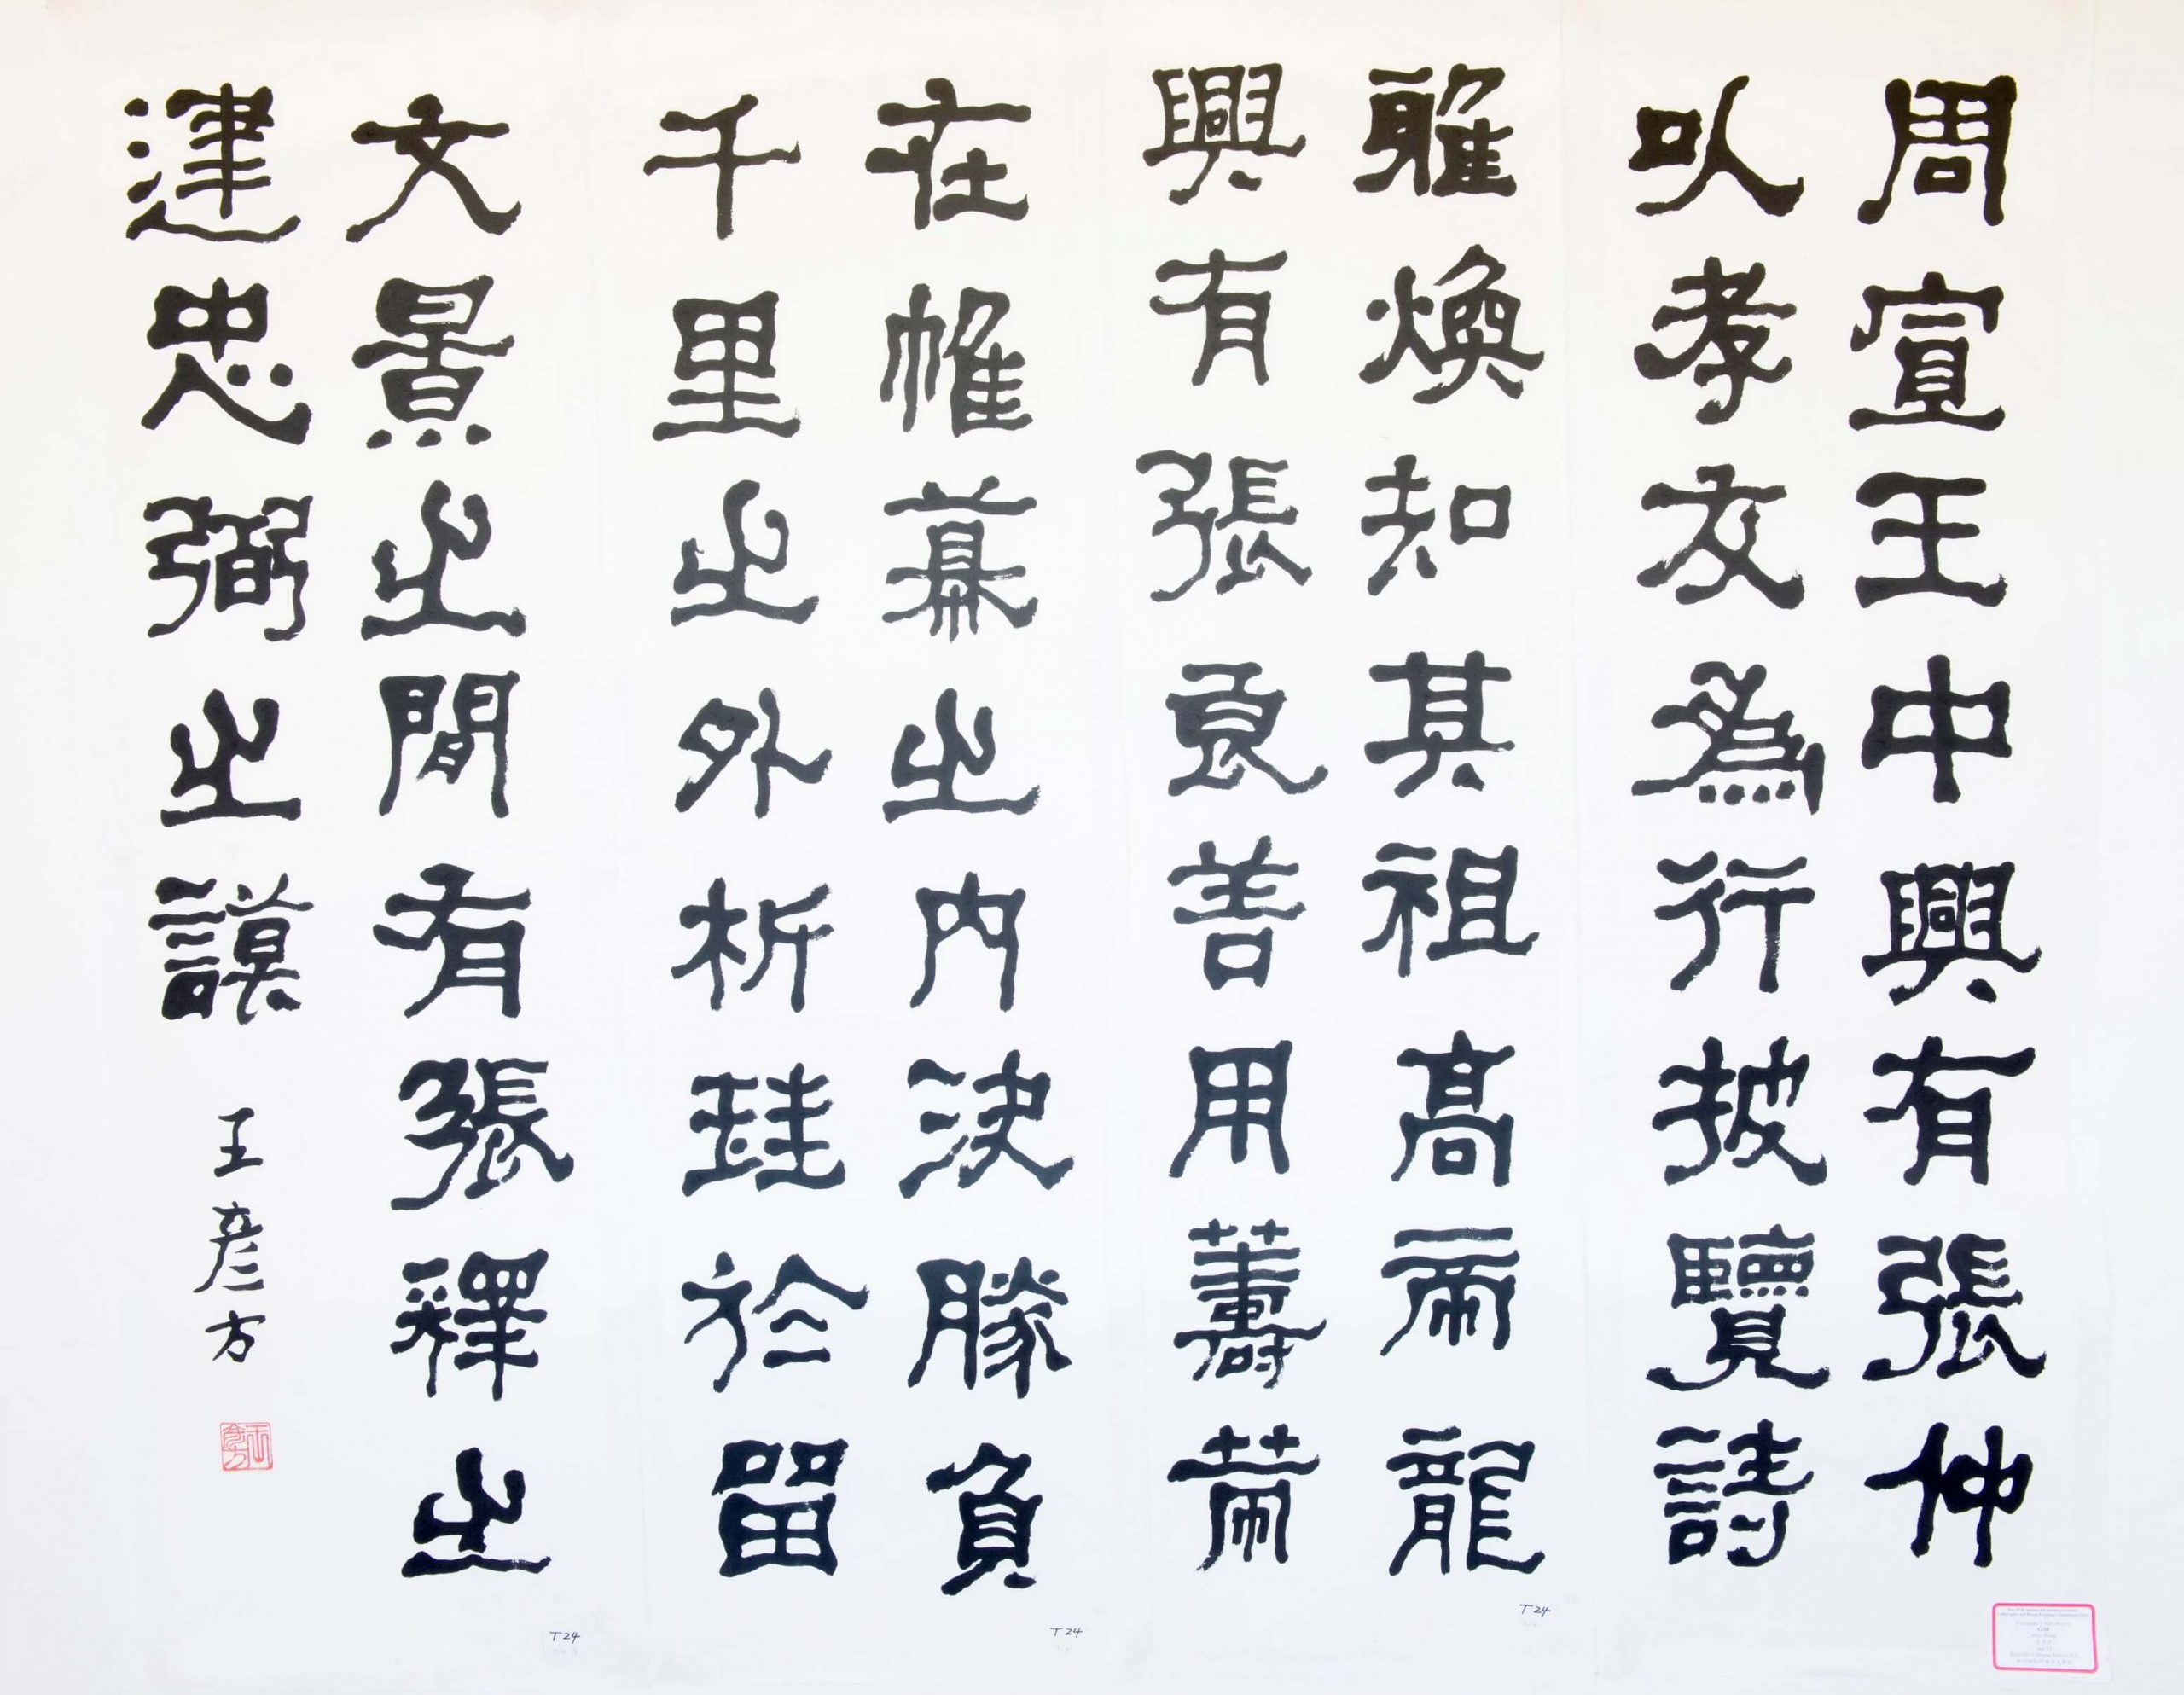 周宣王中興有張仲
以孝友為行披覽詩
雅煥知其祖高帝龍
興有張良善用籌策
在帷幕之內決勝負
千里之外析珪於留
文景之間有張釋之
建忠弼之謨
王彥方
T24
T24
T24